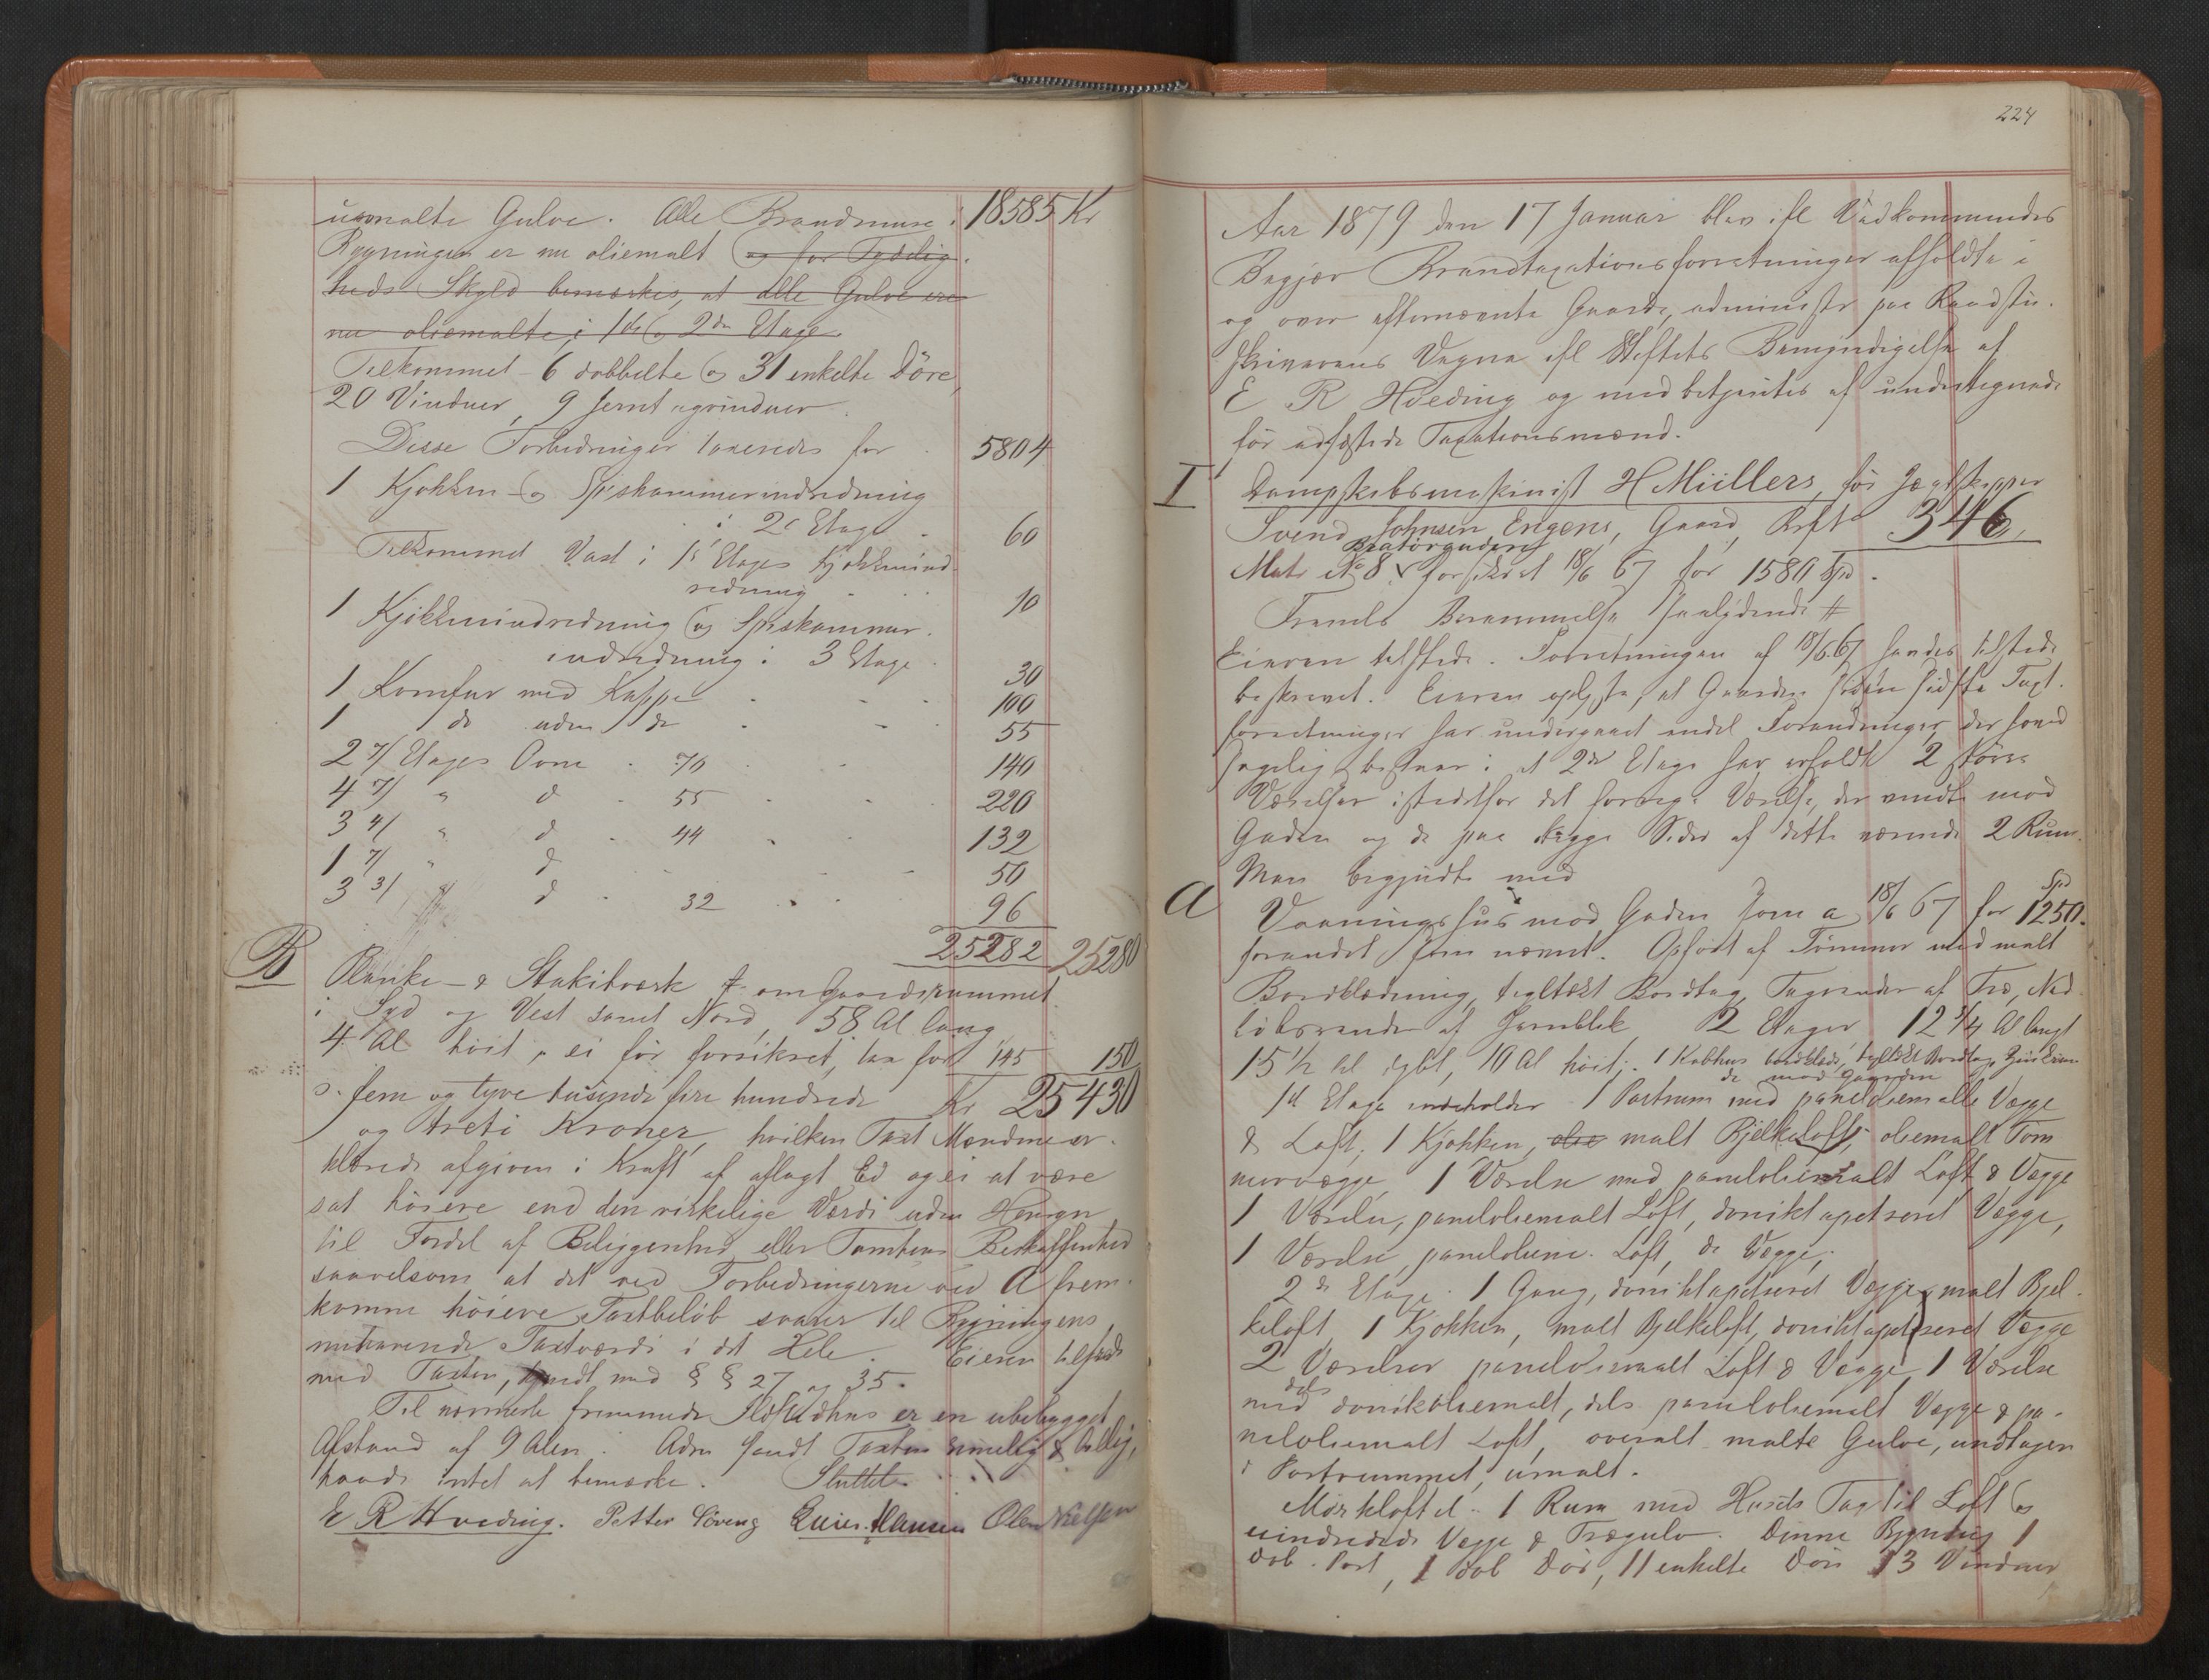 umalte Gulve. Alle Brandmure i 18585 Kr
Bygningen er nu oliemalt og for Tydelig-
heds Skyld bemærkes, at alle Gulve ere
nu oliemalte i 1ste og 2den Etage
Tilkommet 6 dobbelte og 31 enkelte Döre,
20 Vinduer, 9 Jernt agvinduer.
Disse Forbedringer taxeredes for 5804
1 Kjøkken- og Spiskammerindredning
i 2e Etage 60
Tilkommet Vask i 1s Etages Kjøkkenind-
redning 10
1 Kjökkenindredning og Spiskammer-
indredning i 3 Etage 30
1 Komfur med Kappe 100
1 do uden do 55
2 7/ Etages Ovne 70 140
4 7/ " d 55 220
3 4/ " d 44 132
1 7/ " d 50
3 3/ " d 32 96
25282 25280
B Planke- & Stakitværk om Gaardsrummet
i Syd og Vest samt Nord, 58 Al lang
4 Al höit, ei før forsikret, tax for 145 150
s. fem og tyve tusinde fire hundrede Kr 25430
og treti Kroner, hvilken Taxt Mændene er-
klærede afgiven i Kraft af aflagt Ed og ei at være
sat höiere end den virkelige Værdi uden Hensyn
til Fordel af Beliggenhed eller Tomtens Beskaffenhed
saavelsom at det ved Forbedringerne ved A frem-
komne höiere Taxtbelöb svarer til Bygningens
nuhavende Taxtværdi i det Hele. Eieren tilfreds
med Taxten, kjendt med § § 27 og 35.
Til nærmeste fremmede Ildstedhus er en ubebygget
Afstand af 9 Alen. Adm fandt Taxten rimelig & billig,
havde intet at bemærke. Sluttet
E R Hveding. Petter Söreng Hansen Ole Nielsen
224
Aar 1879 den 17 Januar blev ifl Vedkommendes
Begjær Brandtaxationsforretninger afholdte i
og over efternævnte Gaarde, administr paa Raadstu-
skriverens Vegne ifl Stiftets Bemyndigelse af
E R Hveding og med betjentes af undertegnede
för udsæste Taxationsmænd.
I Dampskibsmaskinist H Müllers, för Jægtskipper
Svend Johnsen Engens, Gaard, Brfto 346,
Bratörgaden
Matr No 8 forsikret 18/6 67 for 1580 Spd.
Fremls Berammelse saalydende #
Eieren tilstede. Forretningen af 18/6 67 fandes tilstede
beskrevet. Eieren oplyste, at Gaarden siden sidste Taxt-
forretninger har undergaaet endel Forandringer, der hoved-
sagelig bestaar i at 2de Etage har erholdt 2 större
Værelser istedetfor det forrige Værelse, der vendte mod
Gaden og de paa begge Sider af dette værende 2 Rum.
Man begyndte med
Spd
A Vaaningshus mod Gaden som a 18/6 67 for 1250.
forandret som nævnt. Opfört af Tömmer med malt
Bordklædning, tegltækt Bordtag, Tagrender af Træ, Ned-
löbsrender af Jernblik 2 Etager 12 3/4 Al langt
15 1/2 Al dybt, 10 Al höit; 1 Kobhus bordklædt, tegltækt Bordtag,
do mod Gaarden
1st Etage indeholder 1 Portrum med paneloliemalte Vægge
& Loft, 1 Kjøkken, malt Bjelkeloft, oliemalt Töm-
mervægge, 1 Værelse med paneloliemalt Loft & Vægge
1 Værelse, paneloliemalt Loft, doniktapetseret Vægge,
1 Værelse, paneloliem. Loft, do Vægge;
2de Etage: 1 Gang, doniktapetseret Vægge, malt Bjel-
keloft, 1 Kjøkken, malt Bjelkeloft, doniktapetseret Vægge
2 Værelser paneloliemalt Loft & Vægge, 1 Værelse
med dels donikoliemalt, dels paneloliemalt Vægge & pa-
neloliemalt Loft, overalt malte Gulve, undtagen
i Portrummet, umalt.
Mörkloftet: 1 Rum med Husets Tag til Loft og
uindredede Vægge & Trægulv. Denne Bygning 1
dob. Port, 1 dob Dör, 11 enkelte Döre 13 Vinduer